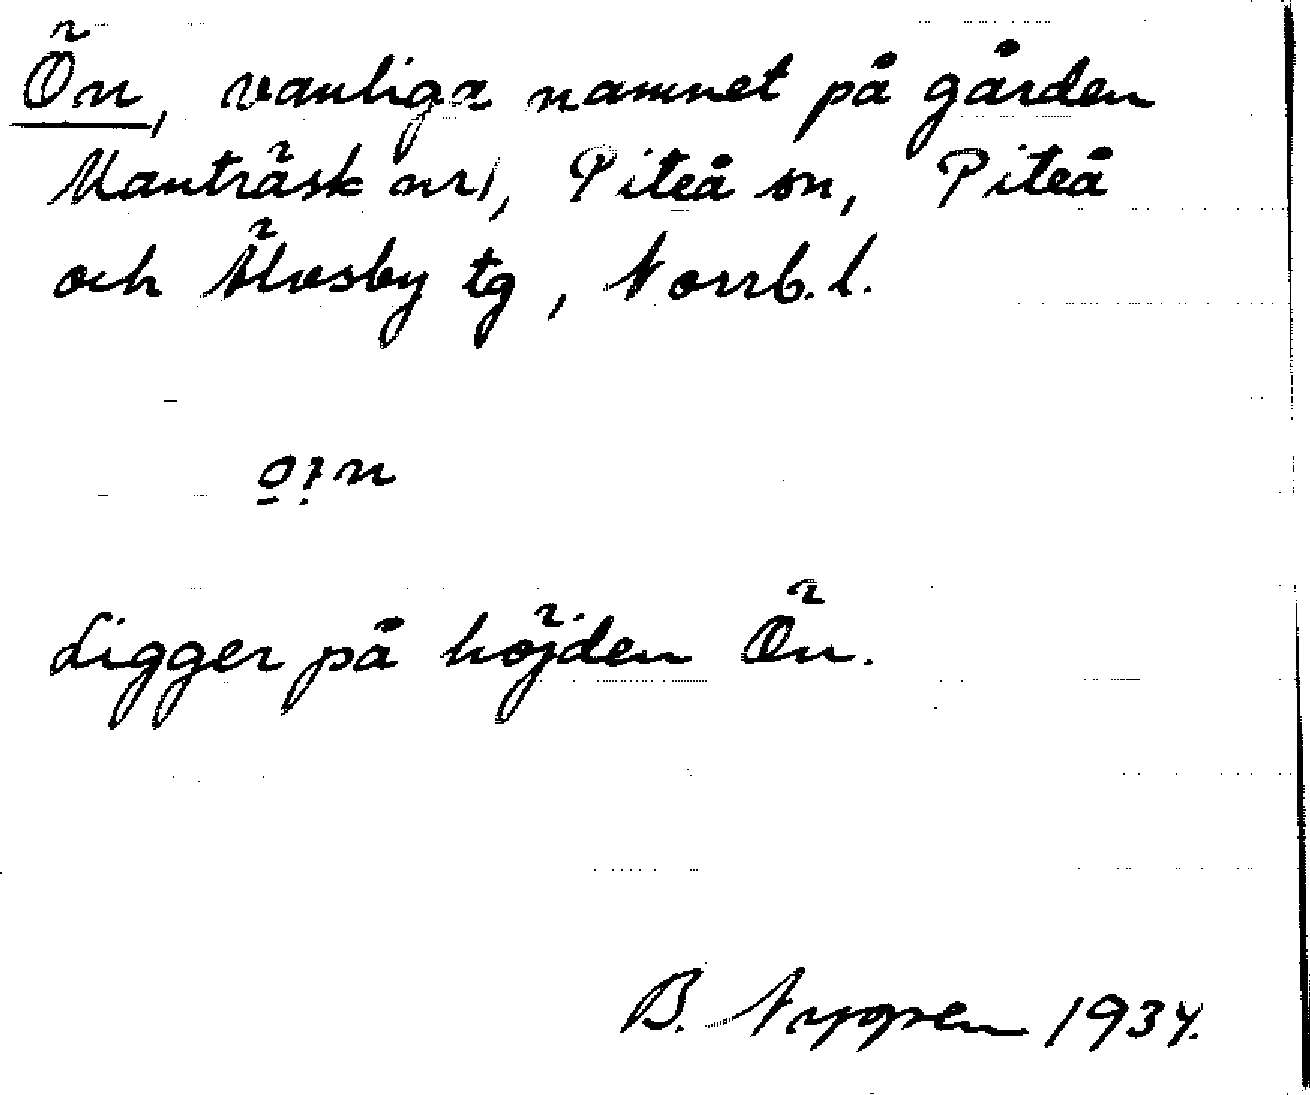 Ön, vanliga namnet på gården
Manträsk nr 1, Piteå sn, Piteå
och Älvsby tg, Norrb. l.
Ligger på höjden Ön.
B. Nygren 1934.